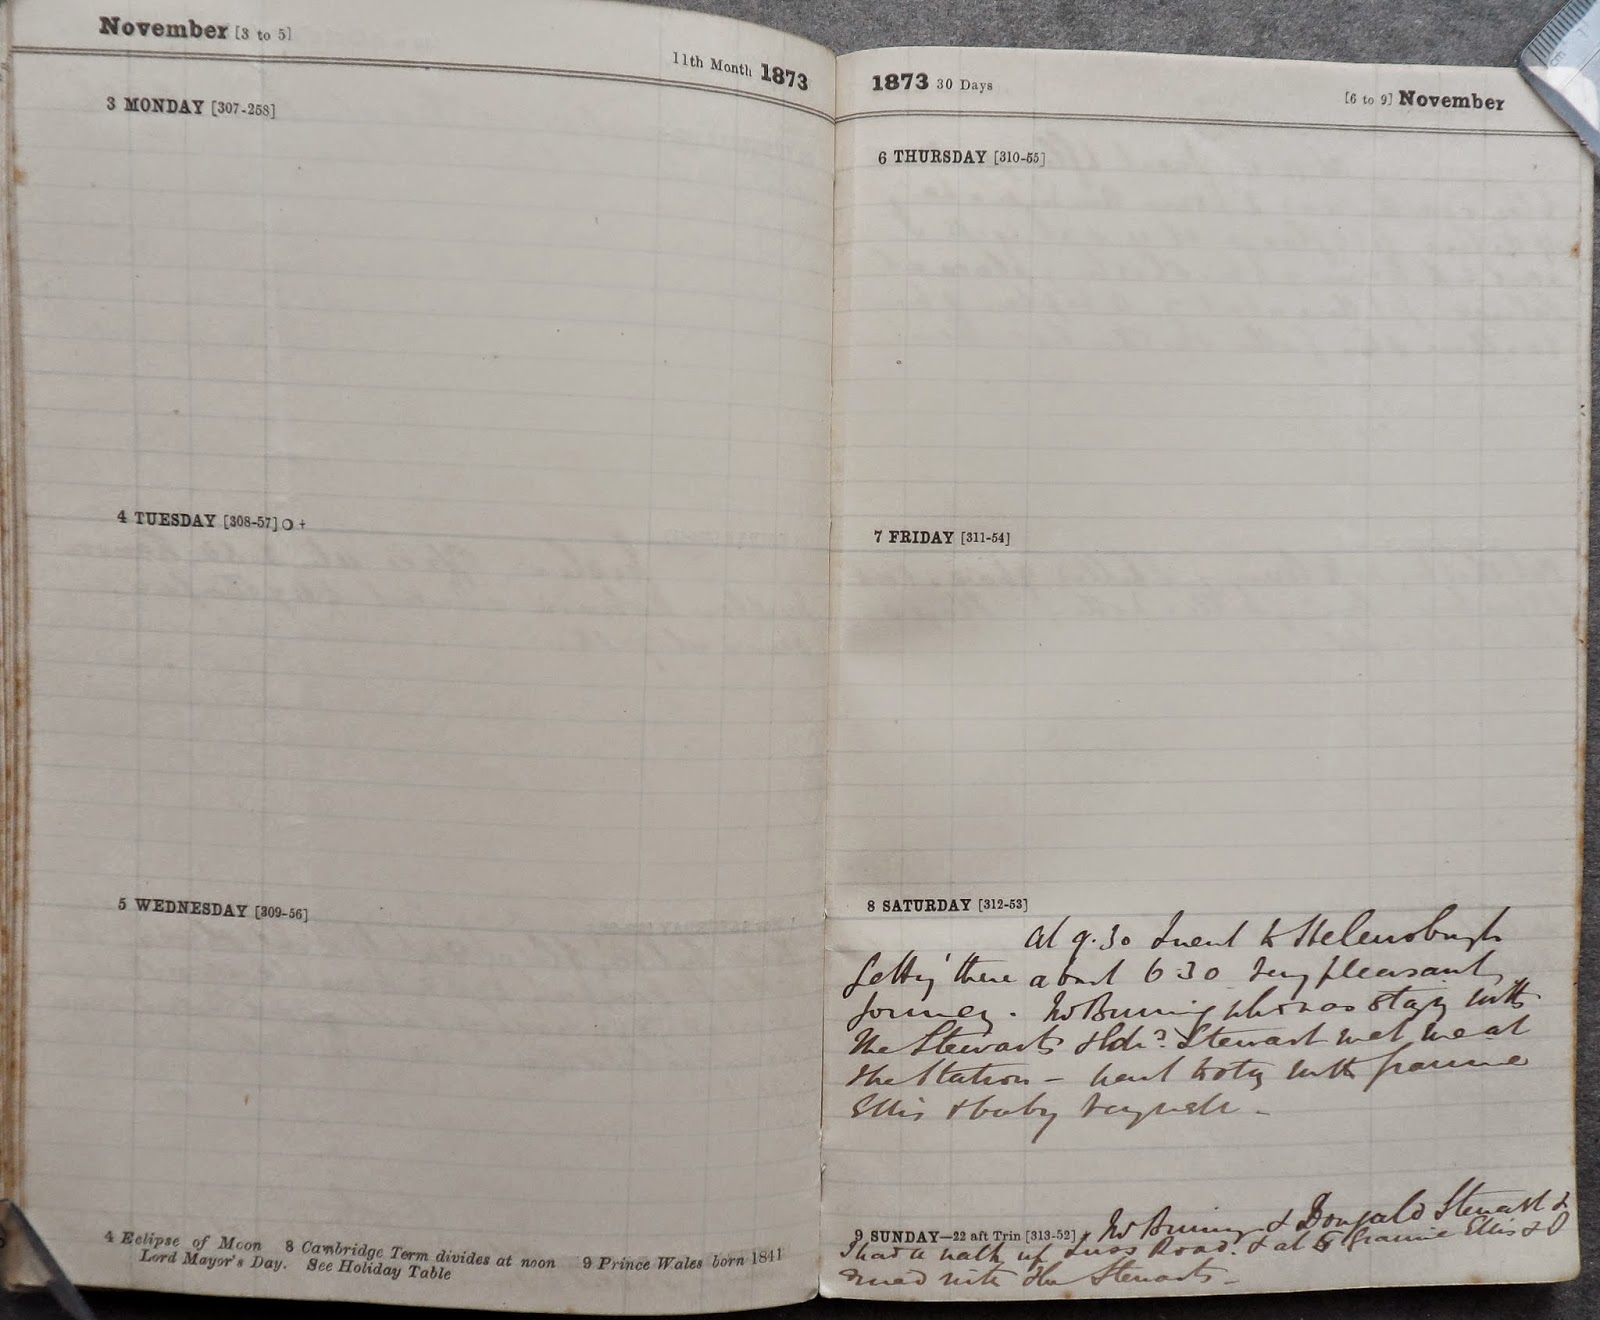 November [3 to 5]
11th Month 1873
3 MONDAY [307-258]
4 TUESDAY [308-57] O +
5 WEDNESDAY [309-56]
4 Eclipse of Moon 8 Cambridge Term divides at noon 9 Prince Wales born 1841
Lord Mayor's Day. See Holiday Table
1873 30 Days
[6 to 9] November
6 THURSDAY [310-55]
7 FRIDAY [311-54]
8 SATURDAY [312-53]
At 9.30 I went to Helensburgh
getting there about 6 30 very pleasant
journey. Bunning who was staying with
the Stewarts & Stewart met me at
the Station – went with Frannie
Ellis & baby very well –
9 SUNDAY—22 aft Trin [313-52] Bunning & Dougald Stewart &
I had a walk up Luss Road. & at 5 Frannie Ellis & I
dined with the Stewarts –